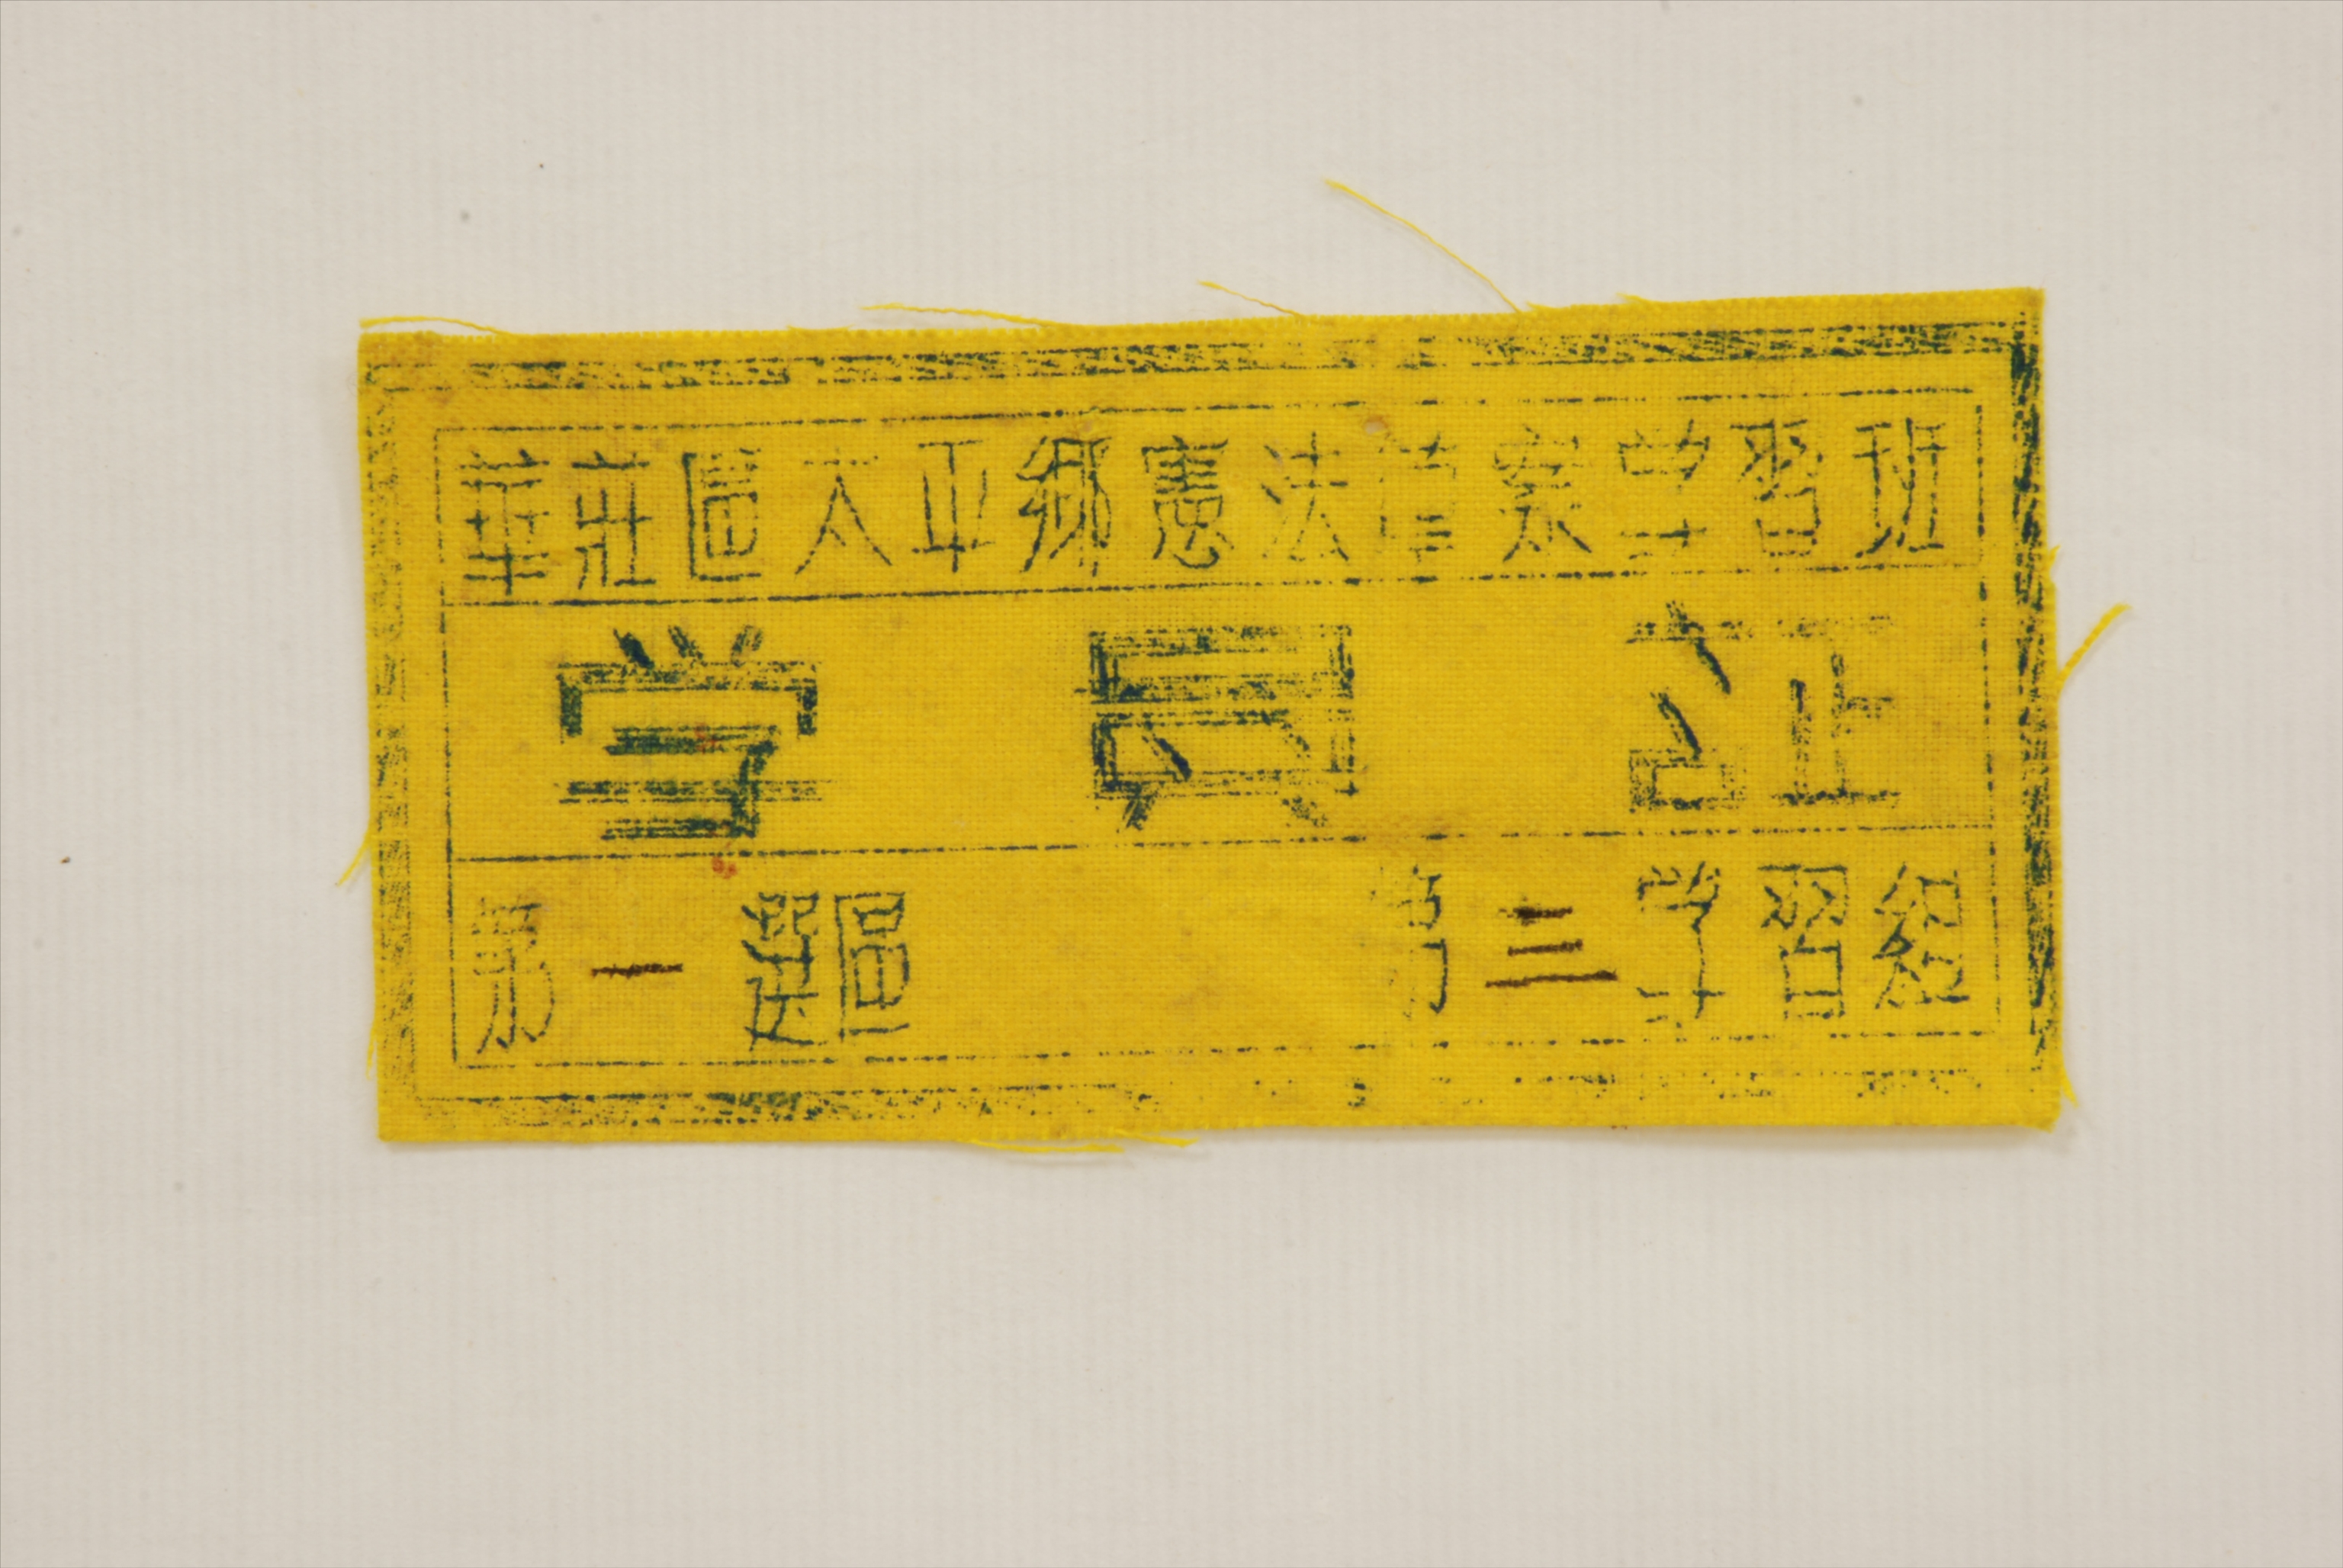 華莊區太平鄉憲法草案学習班
学員証
第一選區 第三学習組